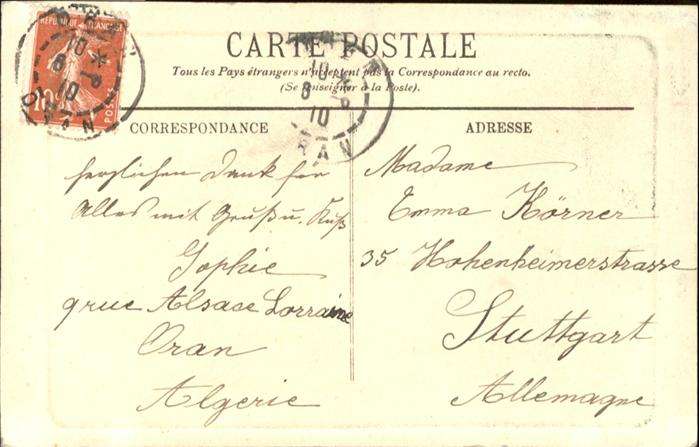 RÉPUBLIQUE FRANÇAISE
10
POSTES
10 *
8 - 8
10
ORAN
CARTE POSTALE
Tous les Pays étrangers n'acceptent pas la Correspondance au recto.
(Se renseigner à la Poste).
10 *
8 - 8
10
ORAN
CORRESPONDANCE
herzlichen Dank für
Alles mit Gruß u. Kuß
Sophie
9 rue Alsace Lorraine
Oran
Algerie
ADRESSE
Madame
Emma Körner
35 Hohenheimerstrasse
Stuttgart
Allemagne